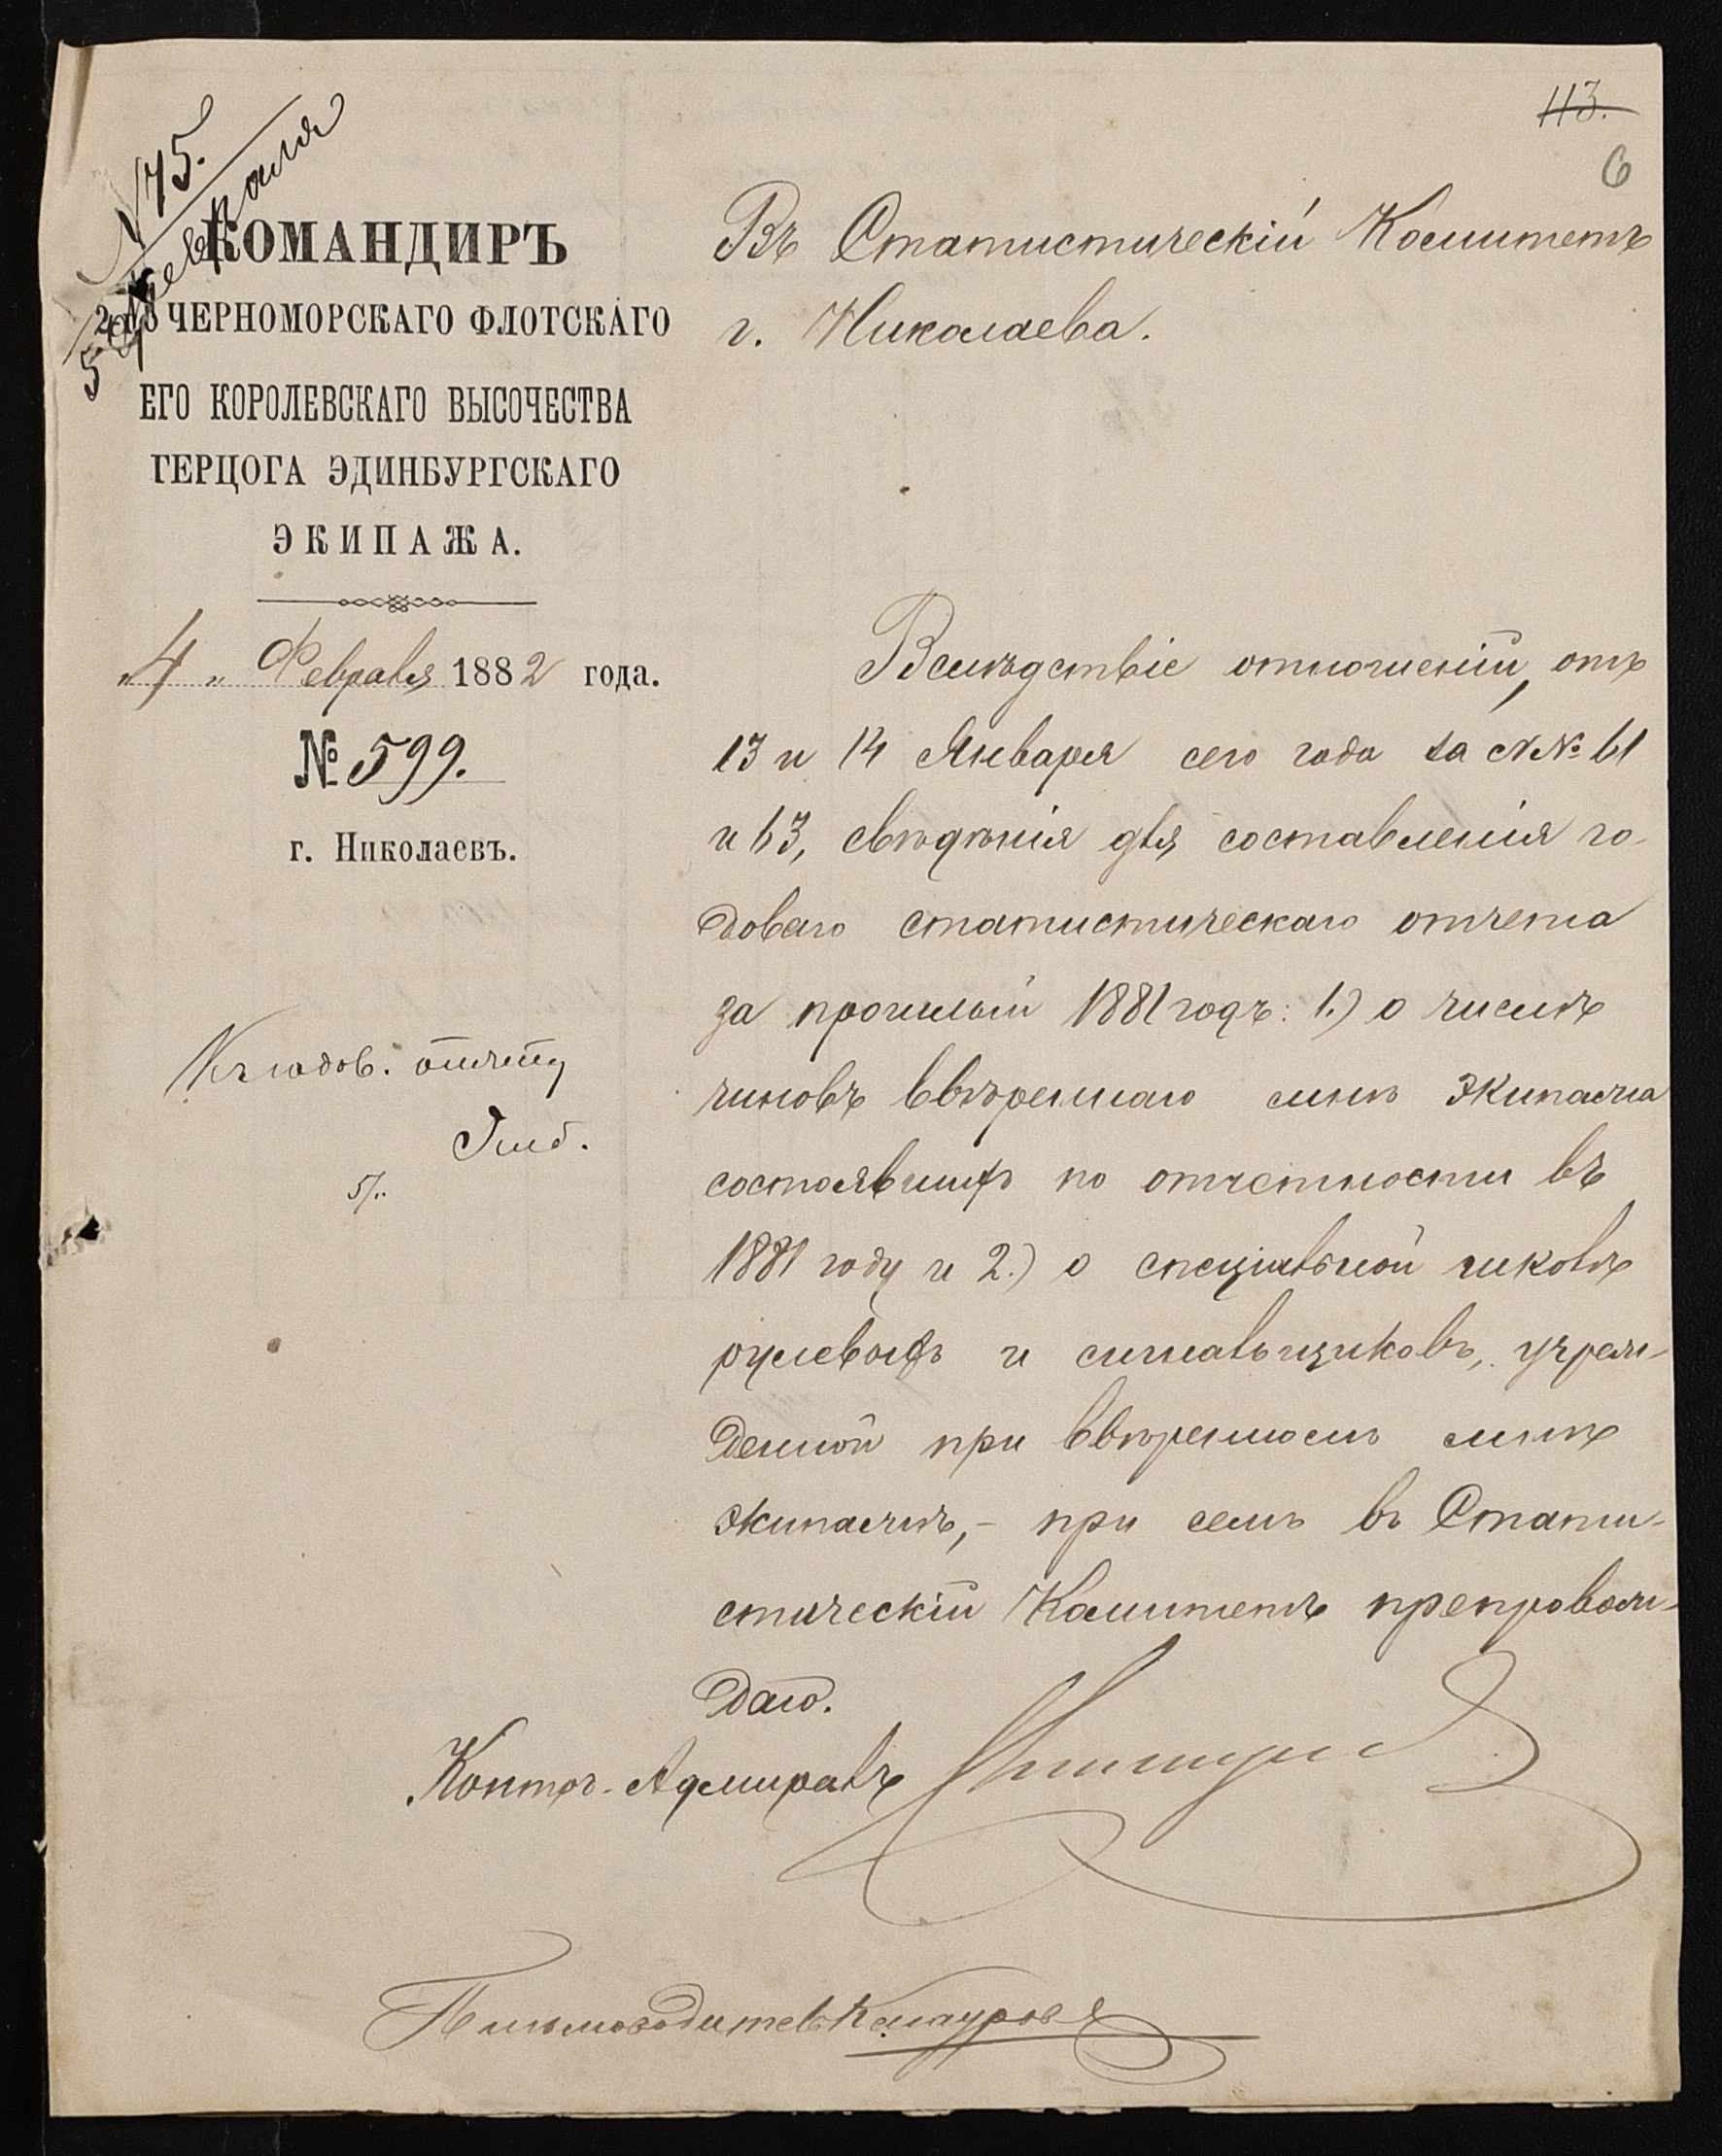 113.
6
№ 75.
5 февраля
КОМАНДИРЪ
2го ЧЕРНОМОРСКАГО ФЛОТСКАГО
ЕГО КОРОЛЕВСКАГО ВЫСОЧЕСТВА
ГЕРЦОГА ЭДИНБУРГСКАГО
ЭКИПАЖА.
„4„ Февраля 1882 года.
№ 599.
г. Николаевъ.
Къ годов. отчету
5/..
Въ Статистическій Комитетъ
г. Николаева.
Вслѣдствіе отношеній, отъ
13 и 14 Января сего года за №№ 61
и 63, свѣдѣнія для составленія го-
доваго статистическаго отчета
за прошлый 1881 годъ: 1.) о числѣ
чиновъ ввѣреннаго мнѣ Экипажа
состоявшихъ по отчетности въ
1881 году и 2.) о спеціальной школѣ
рулевыхъ и сигнальщиковъ, учреж-
денной при ввѣренномъ мнѣ
экипажѣ,- при семъ въ Стати-
стическій Комитетъ препровож-
даю.
Контръ-Адмиралъ
Письмоводитель